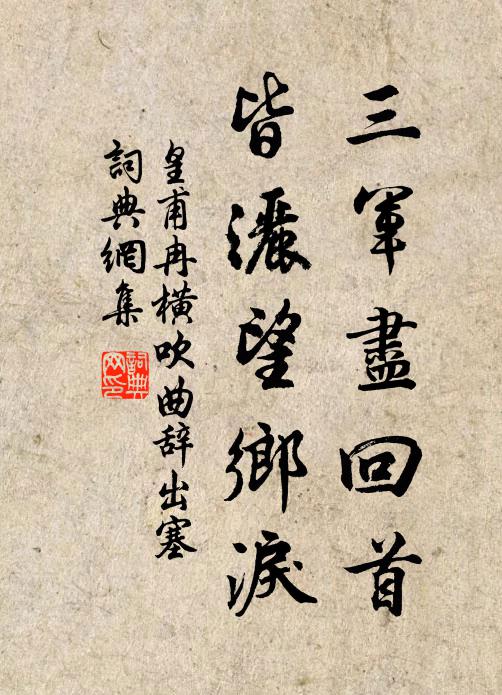 三軍盡回首
皆灑望鄉淚
皇甫冉橫吹曲辞出塞
詞典網集
詞典
网印